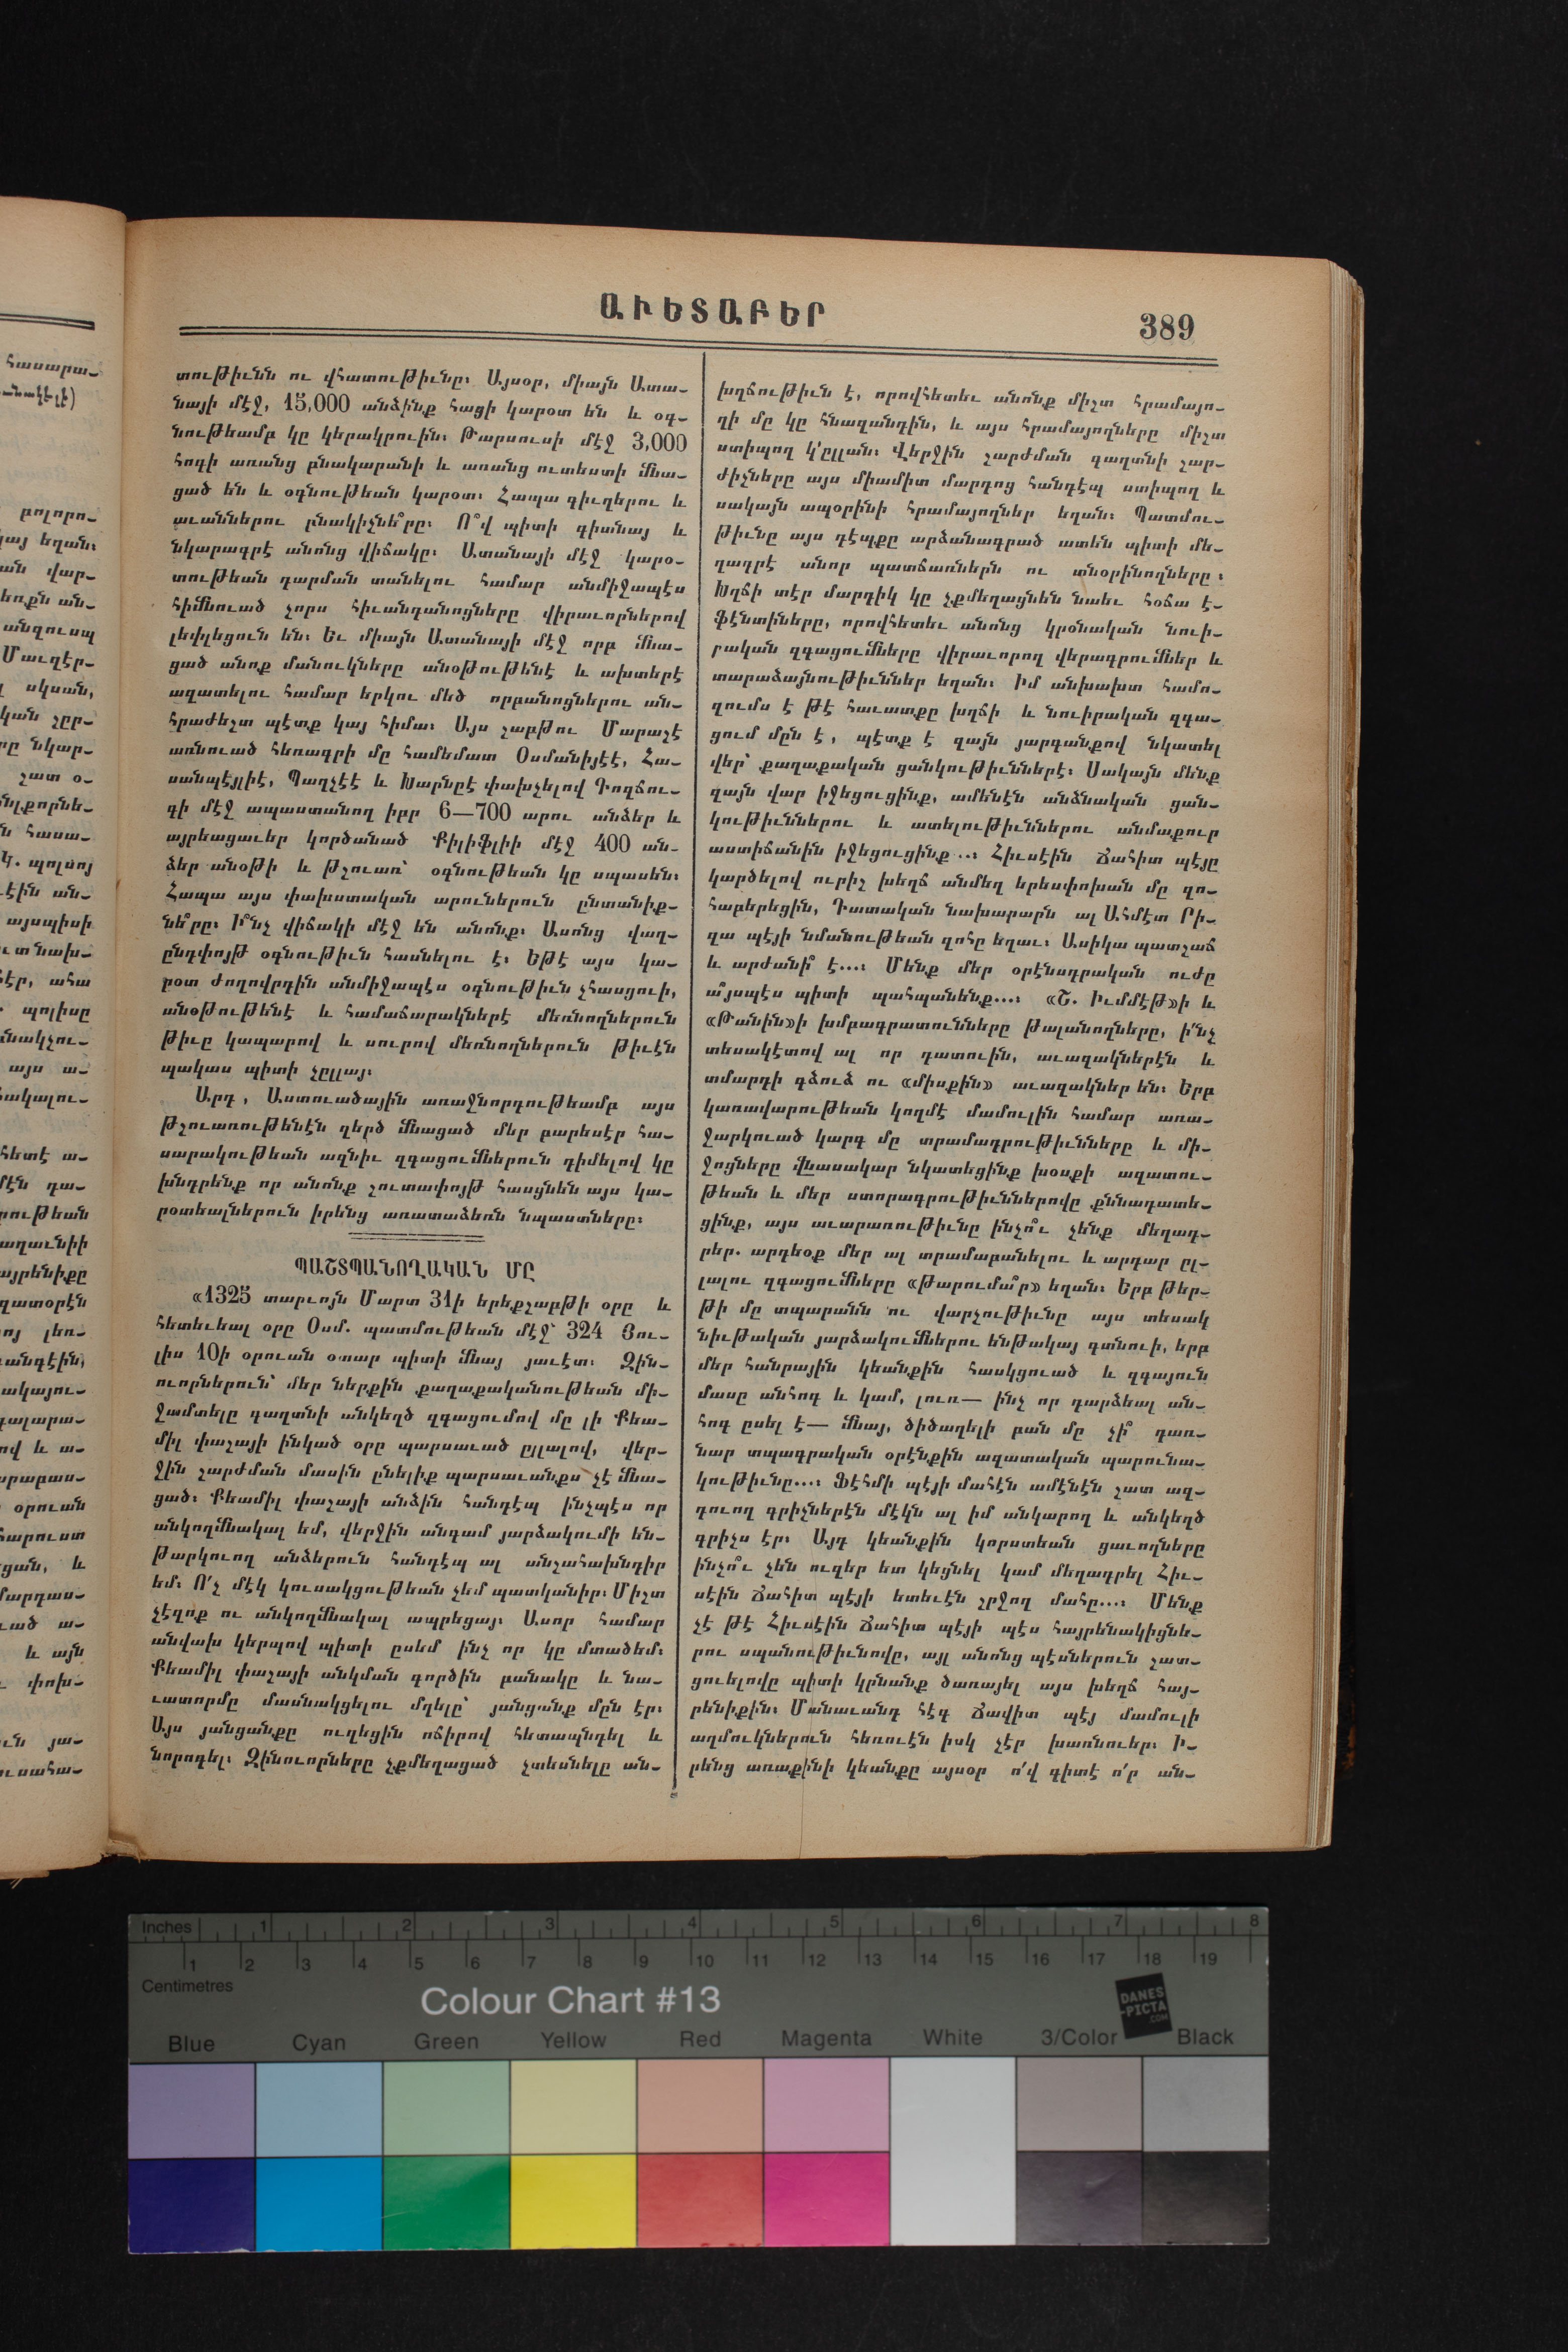 ԱՒԵՏԱԲԵՐ
389
տութիւնն ու վհատութիւնը։ Այսօր, միայն Ատա-
նայի մէջ, 15,000 անձինք հացի կարօտ են և օգ-
նութեամբ կը կերակրուին։ Թարսուսի մէջ 3,000
հոգի առանց բնակարանի և առանց ուտեստի մնա-
ցած են և օգնութեան կարօտ։ Հապա գիւղերու և
աւաններու բնակիչնե՞րը։ Ո՞վ պիտի գիտնայ և
նկարագրէ անոնց վիճակը։ Ատանայի մէջ կարօ-
տութեան դարման տանելու համար անմիջապէս
հիմնուած չորս հիւանդանոցները վիրաւորներով
լեփլեցուն են։ Եւ միայն Ատանայի մէջ որբ մնա-
ցած անոք մանուկները անօթութենէ և ախտերէ
ազատելու համար երկու մեծ որբանոցներու ան-
հրաժեշտ պէտք կայ հիմա։ Այս շաբթու Մարաշէ
առնուած հեռագրի մը համեմատ Օսմանիյէէ, Հա-
սանպէյլիէ, Պաղչէէ և Խարնըէ փախչելով Դողճու-
գի մէջ ապաստանող իբր 6—700 արու անձեր և
այրեացաւեր կործանած Քիլիֆլիի մէջ 400 ան-
ձեր անօթի և թշուառ՝ օգնութեան կը սպասեն։
Հապա այս փախստական արուներուն ընտանիք-
նե՞րը։ Ի՞նչ վիճակի մէջ են անոնք։ Ասոնց վաղ-
ընդփոյթ օգնութիւն հասնելու է։ Եթէ այս կա-
րօտ ժողովրդին անմիջապէս օգնութիւն չհասցուի,
անօթութենէ և համաճարակներէ մեռնողներուն
թիւը կապարով և սուրով մեռնողներուն թիւէն
պակաս պիտի չըլլայ։
Արդ, Աստուածային առաջնորդութեամբ այս
թշուառութենէն զերծ մնացած մեր բարեսէր հա-
սարակութեան ազնիւ զգացումներուն դիմելով կը
խնդրենք որ անոնք շուտափոյթ հասցնեն այս կա-
րօտեալներուն իրենց առատաձեռն նպաստները։
ՊԱՇՏՊԱՆՈՂԱԿԱՆ ՄԸ
«1325 տարւոյն Մարտ 31ի երեքշաբթի օրը և
հետեւեալ օրը Օսմ. պատմութեան մէջ՝ 324 Յու-
լիս 10ի օրուան օտար պիտի մնայ յաւէտ։ Զին-
ուորներուն՝ մեր ներքին քաղաքականութեան մի-
ջամտելը գաղտնի անկեղծ զգացումով մը լի Քեա-
միլ փաշայի ինկած օրը պարսաւած ըլլալով, վեր-
ջին շարժման մասին ընելիք պարսաւանքս չէ մնա-
ցած։ Քեամիլ փաշայի անձին հանդէպ ինչպէս որ
անկողմնակալ եմ, վերջին անգամ յարձակումի են-
թարկուող անձերուն հանդէպ ալ անշահախնդիր
եմ։ Ո՛չ մէկ կուսակցութեան չեմ պատկանիր։ Միշտ
չէզոք ու անկողմնակալ ապրեցայ։ Ասոր համար
անվախ կերպով պիտի ըսեմ ինչ որ կը մտածեմ։
Քեամիլ փաշայի անկման գործին բանակը և նա-
ւատորմը մասնակցելու մղելը՝ յանցանք մըն էր։
Այս յանցանքը ուղեցին ոճիրով հետապնդել և
նորոգել։ Զինուորները չքմեղացած չտեսնելը ան-
խղճութիւն է, որովհետեւ անոնք միշտ հրամայո-
ղի մը կը հնազանդին, և այս հրամայողները միշտ
ստիպող կ՚ըլլան։ Վերջին շարժման գաղտնի շար-
ժիչները այս միամիտ մարդոց հանդէպ ստիպող և
սակայն ապօրինի հրամայողներ եղան։ Պատմու-
թիւնը այս դէպքը արձանագրած ատեն պիտի մե-
ղադրէ անոր պատճառներն ու տնօրինողները։
Խղճի տէր մարդիկ կը չքմեղացնեն նաեւ հօճա է-
ֆէնտիները, որովհետեւ անոնց կրօնական նուի-
րական զգացումները վիրաւորող վերագրումներ և
տարաձայնութիւններ եղան։ Իմ անխախտ համո-
զումս է թէ հաւատքը խղճի և նուիրական զգա-
ցում մըն է, պէտք է զայն յարգանքով նկատել
վեր՝ քաղաքական ցանկութիւններէ։ Սակայն մենք
զայն վար իջեցուցինք, ամենէն անձնական ցան-
կութիւններու և ատելութիւններու անմաքուր
աստիճանին իջեցուցինք...։ Հիւսէին Ճահիտ պէյը
կարծելով ուրիշ խեղճ անմեղ երեսփոխան մը զո-
հաբերեցին, Դատական նախարարն ալ Ահմէտ Րի-
զա պէյի նմանութեան զոհը եղաւ։ Ասիկա պատշաճ
և արժանի՞ է...։ Մենք մեր օրէնսդրական ուժը
ա՞յսպէս պիտի պահպանենք...։ «Շ. Իւմմէթ»ի և
«Թանին»ի խմբագրատունները թալանողները, ի՛նչ
տեսակէտով ալ որ դատուին, աւազակներէն և
տմարդի գձուձ ու «միսքին» աւազակներ են։ Երբ
կառավարութեան կողմէ մամուլին համար առա-
ջարկուած կարգ մը տրամադրութիւնները և մի-
ջոցները վնասակար նկատեցինք խօսքի ազատու-
թեան և մեր ստորագրութիւններովը քննադատե-
ցինք, այս աւարառութիւնը ինչո՞ւ չենք մեղադ-
րեր. արդեօք մեր ալ տրամաբանելու և արդար ըլ-
լալու զգացումները «թարումա՞ր» եղան։ Երբ թեր-
թի մը տպարանն ու վարչութիւնը այս տեսակ
նիւթական յարձակումներու ենթակայ գտնուի, երբ
մեր հանրային կեանքին հասկցուած և զգայուն
մասը անհոգ և կամ, լուռ— ինչ որ դարձեալ ան-
հոգ ըսել է— մնայ, ծիծաղելի բան մը չի՞ դառ-
նար տպագրական օրէնքին ազատական պարունա-
կութիւնը...։ Ֆէհմի պէյի մահէն ամէնէն շատ ազ-
դուող գրիչներէն մէկն ալ իմ անկարող և անկեղծ
գրիչս էր։ Այդ կեանքին կորստեան ցաւողները
ինչո՞ւ չեն ուզեր ետ կեցնել կամ մեղադրել Հիւ-
սէին Ճահիտ պէյի ետեւէն շրջող մահը...։ Մենք
չէ թէ Հիւսէին Ճահիտ պէյի պէս հայրենակիցնե-
րու սպանութիւնովը, այլ անոնց պէսներուն շատ-
ցուելովը պիտի կրնանք ծառայել այս խեղճ հայ-
րենիքին։ Մանաւանդ հէգ Ճավիտ պէյ մամուլի
աղմուկներուն հեռուէն իսկ չէր խառնուեր։ Ի-
րենց առաքինի կեանքը այսօր ո՛վ գիտէ ո՛ր ան-
հասարա-
բոլորո-
եղան։
վար-
անզուսպ
Մաւզէր-
սկսան,
նկար-
պոլսոյ
այսպիսի
պոլիսը
այս ա-
օրուան
և այն
փոխ-
Inches 1 2 3 4 5 6 7 8
1 2 3 4 5 6 7 8 9 10 11 12 13 14 15 16 17 18 19
Centimetres
Colour Chart #13
DANES
-PICTA
.COM
Blue Cyan Green Yellow Red Magenta White 3/Color Black